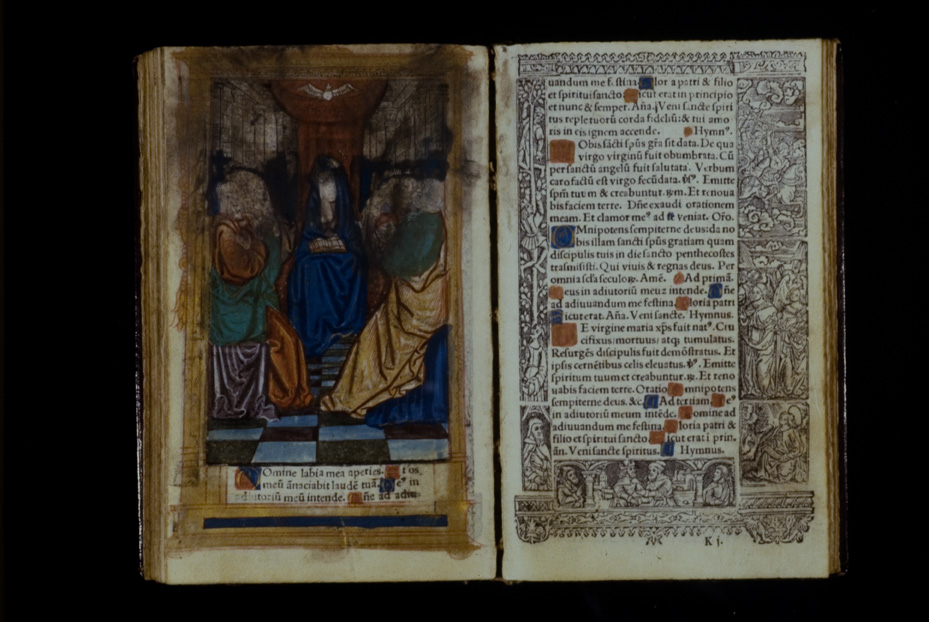 Omine labia mea aperies. t os
meū ānaciabit laudē tuā. eꝰ in
adiutoriū meū intende. ñe ad adiu-
uandum me fe stina lor a patri & filio
et spiritui sancto icut erat in principio
et nunc & semper. Aña. Veni sancte spiri
tus reple tuorū corda fideliū: & tui amo
ris in eis ignem accende. Hymnꝰ.
Obis sācti spūs gr̄a sit data. De qua
virgo virginū fuit obumbrata. Cū
per sanctū angelū fuit salutata. Verbum
caro factū est virgo fecūdata. ℣. Emitte
spm̄ tuū & creabuntur. ℟. Et renoua
bis faciem terre. Dñe exaudi orationem
meam. Et clamor meꝰ ad te veniat. Oro.
OMnipotens sempiterne deus: da no
bis illam sancti spūs gratiam quam
discipulis tuis in die sancto penthecostes
trāsmisisti. Qui viuis & regnas deus. Per
omnia secula Amē. Ad primā.
eus in adiutoriū meuz intende. ñe
ad adiuuandum me festina. loria patri
icut erat. Aña. Veni sancte. Hymnus.
E virgine maria xp̄s fuit natꝰ. Cru
cifixus: mortuus: atq; tumulatus.
Resurgēs discipulis fuit demōstratus. Et
ipsis cernētibus celis eleuatus. ℣. Emitte
spiritum tuum et creabuntur. ℟. Et reno
uabis faciem terre. Oratio mnipotens
sempiterne deus. &c. Ad tertiam. eꝰ
in adiutoriū meum intēde. omine ad
adiuuandum me festina. loria patri &
filio et spiritui sancto. icut erat i prin.
āñ. Veni sancte spiritus. Hymnus.
K j.